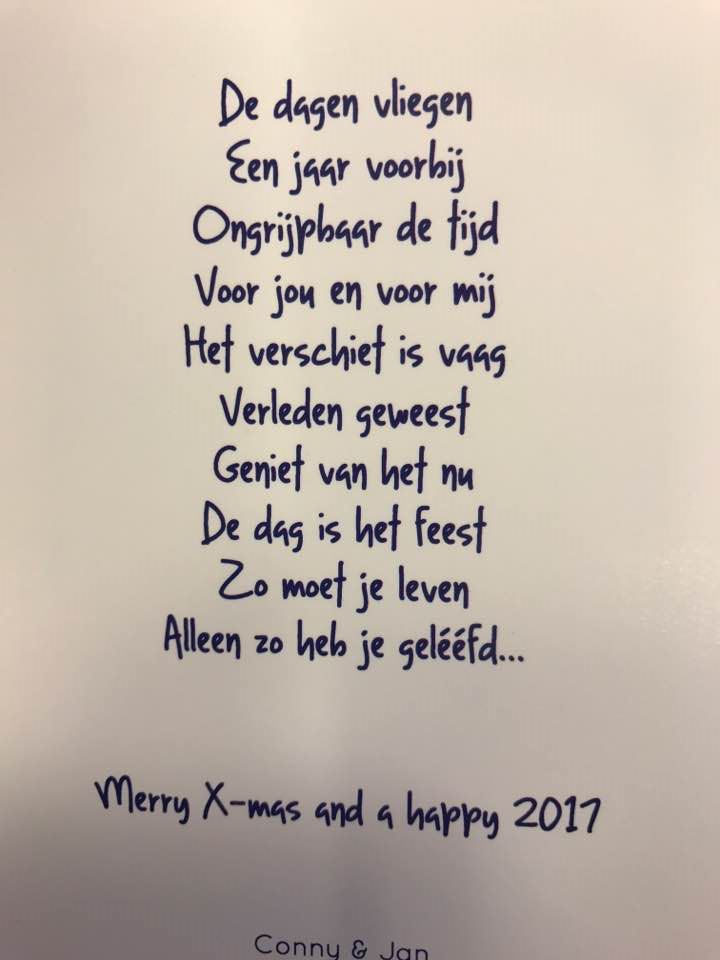 De dagen vliegen
Een jaar voorbij
Ongrijpbaar de tijd
Voor jou en voor mij
Het verschiet is vaag
Verleden geweest
Geniet van het nu
De dag is het feest
Zo moet je leven
Alleen zo heb je gelééfd...
Merry X-mas and a happy 2017
Conny & Jan